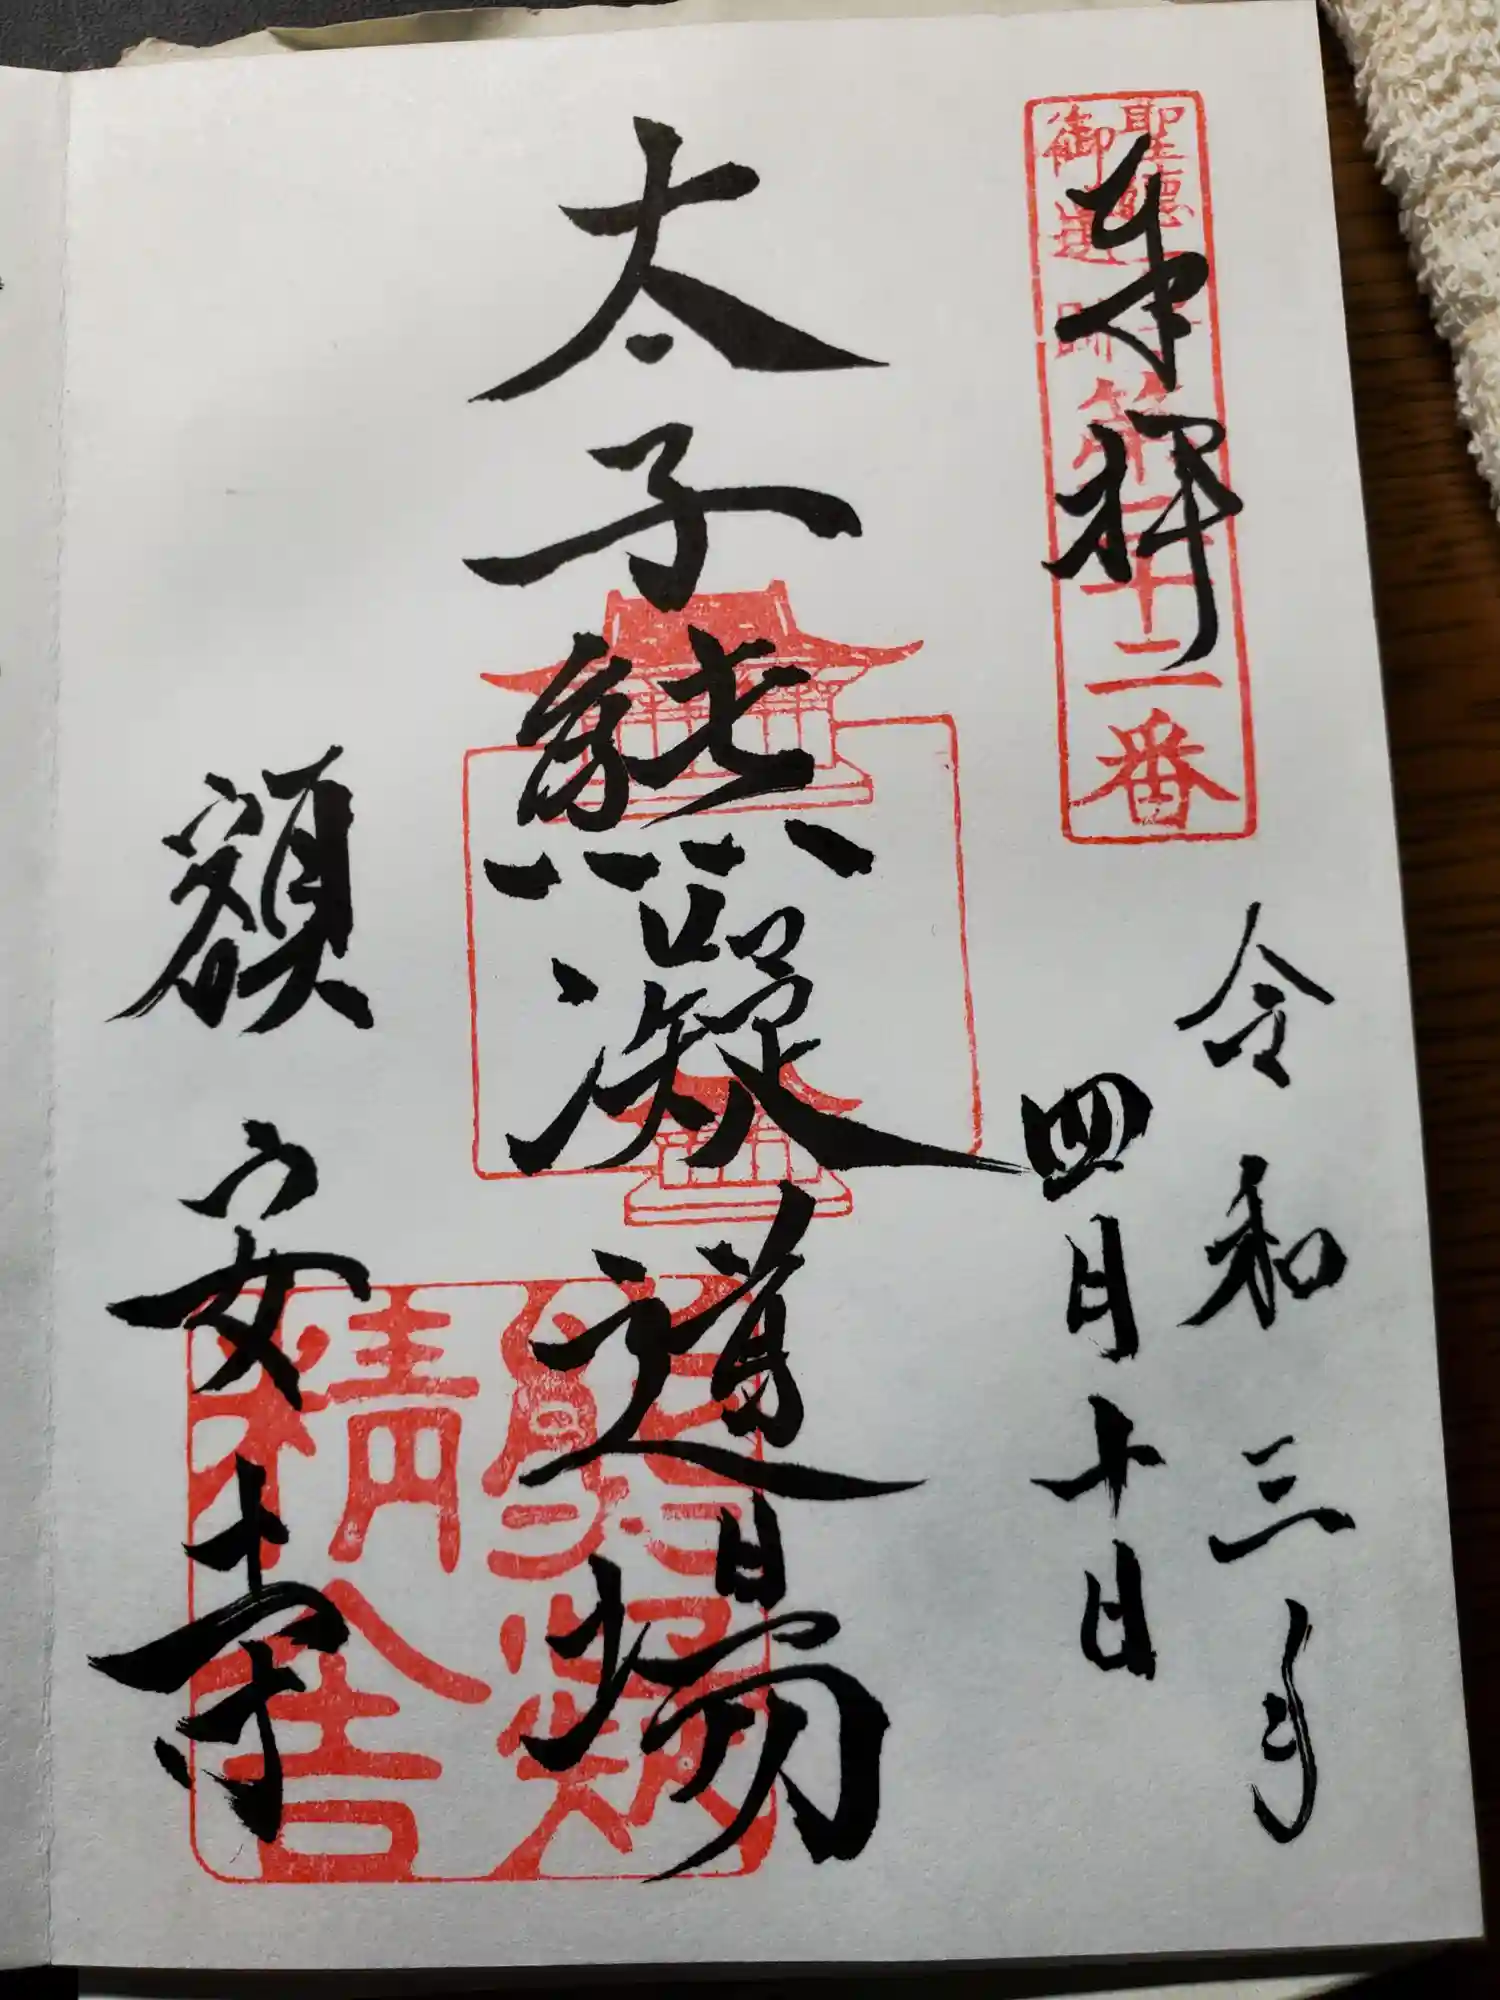 奉拝
聖徳太子
御遺跡
第二十二番
令和三年
四月十日
太子熊凝道場
熊凝
精舎
額安寺